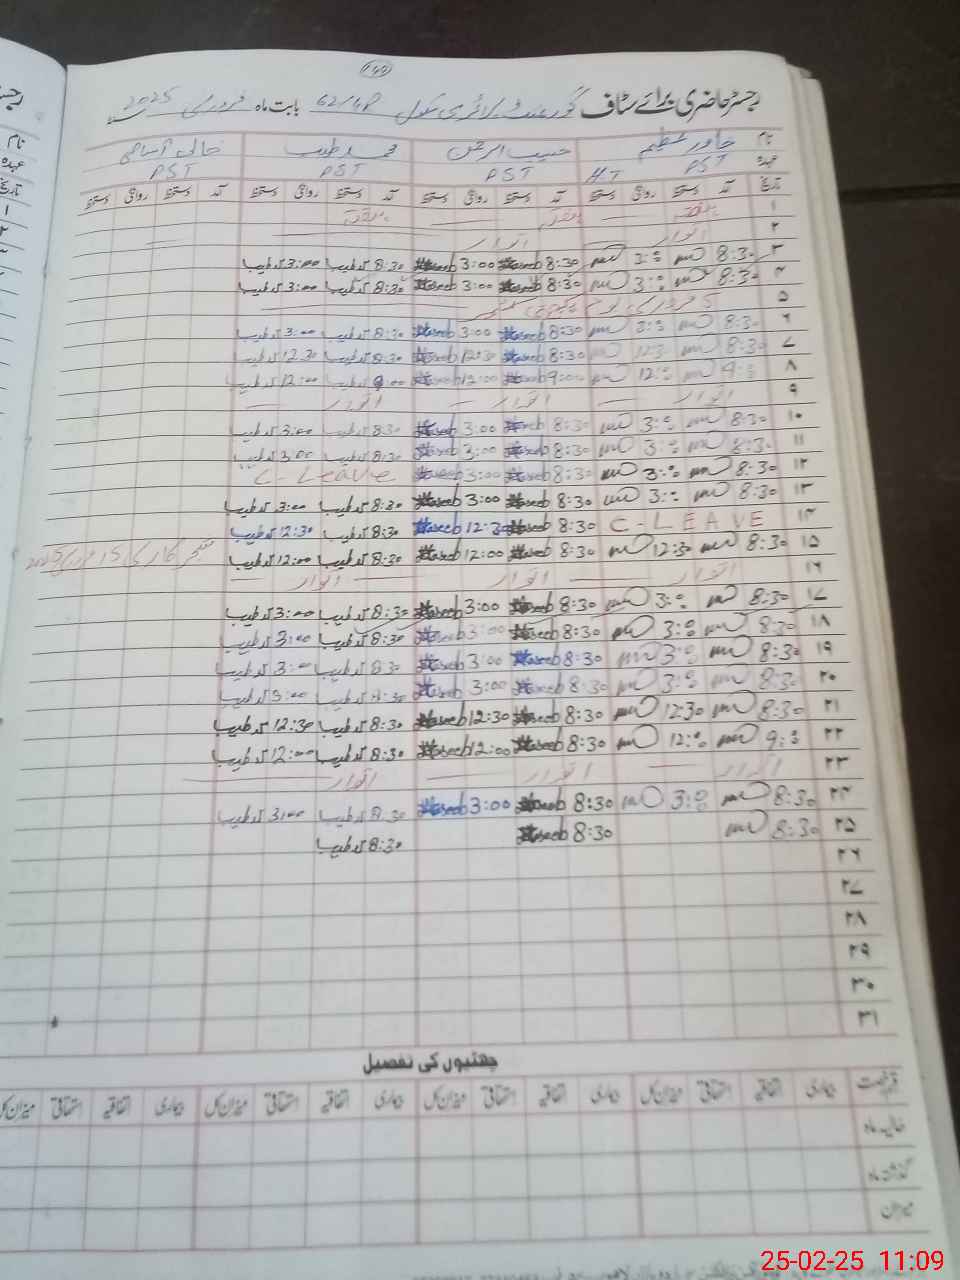 140
رجسٹر حاضری برائے سٹاف گورنمنٹ پرائمری سکول 62/4R بابت ماہ فروری 2025
نام خاور عظیم حبیب الرحمٰن محمد طیب خالی آسامی
عہدہ PST HT PST PST PST
تاریخ آمد دستخط روانگی دستخط آمد دستخط روانگی دستخط آمد دستخط روانگی دستخط آمد دستخط روانگی دستخط
۱ ہفتہ ہفتہ ہفتہ
۲ اتوار اتوار
۳ 8:30 3:00 8:30 Haseeb 3:00 Haseeb 8:30 محمد طیب 3:00 محمد طیب
۴ 8:30 3:00 8:30 Haseeb 3:00 Haseeb 8:30 محمد طیب 3:00 محمد طیب
۵ 5 فروری یوم یکجہتی کشمیر
۶ 8:30 3:00 8:30 Haseeb 3:00 Haseeb 8:30 محمد طیب 3:00 محمد طیب
۷ 8:30 12:30 8:30 Haseeb 12:30 Haseeb 8:30 محمد طیب 12:30 محمد طیب
۸ 9:00 12:00 9:00 Haseeb 12:00 Haseeb 9:00 محمد طیب 12:00 محمد طیب
۹ اتوار اتوار اتوار
۱۰ 8:30 3:00 8:30 Haseeb 3:00 Haseeb 8:30 محمد طیب 3:00 محمد طیب
۱۱ 8:30 3:00 8:30 Haseeb 3:00 Haseeb 8:30 محمد طیب 3:00 محمد طیب
۱۲ 8:30 3:00 8:30 Haseeb 3:00 Haseeb C-Leave
۱۳ 8:30 3:00 8:30 Haseeb 3:00 Haseeb 8:30 محمد طیب 3:00 محمد طیب
۱۴ C-LEAVE 8:30 Haseeb 12:30 Haseeb 8:30 محمد طیب 12:30 محمد طیب
۱۵ 8:30 12:30 8:30 Haseeb 12:00 Haseeb 8:30 محمد طیب 12:00 محمد طیب 15 فروری 2025
۱۶ اتوار اتوار اتوار
۱۷ 8:30 3:00 8:30 Haseeb 3:00 Haseeb 8:30 محمد طیب 3:00 محمد طیب
۱۸ 8:30 3:00 8:30 Haseeb 3:00 Haseeb 8:30 محمد طیب 3:00 محمد طیب
۱۹ 8:30 3:00 8:30 Haseeb 3:00 Haseeb 8:30 محمد طیب 3:00 محمد طیب
۲۰ 8:30 3:00 8:30 Haseeb 3:00 Haseeb 8:30 محمد طیب 3:00 محمد طیب
۲۱ 8:30 12:30 8:30 Haseeb 12:30 Haseeb 8:30 محمد طیب 12:30 محمد طیب
۲۲ 9:00 12:00 8:30 Haseeb 12:00 Haseeb 8:30 محمد طیب 12:00 محمد طیب
۲۳ اتوار اتوار اتوار
۲۴ 8:30 3:00 8:30 Haseeb 3:00 Haseeb 8:30 محمد طیب 3:00 محمد طیب
۲۵ 8:30 8:30 Haseeb 8:30 محمد طیب
۲۶
۲۷
۲۸
۲۹
۳۰
۳۱
چھٹیوں کی تفصیل
قسم رخصت بیماری اتفاقیہ استحقاقی میزان کل بیماری اتفاقیہ استحقاقی میزان کل بیماری اتفاقیہ استحقاقی میزان کل بیماری اتفاقیہ استحقاقی میزان کل
حالیہ ماہ
گذشتہ ماہ
میزان
25-02-25 11:09